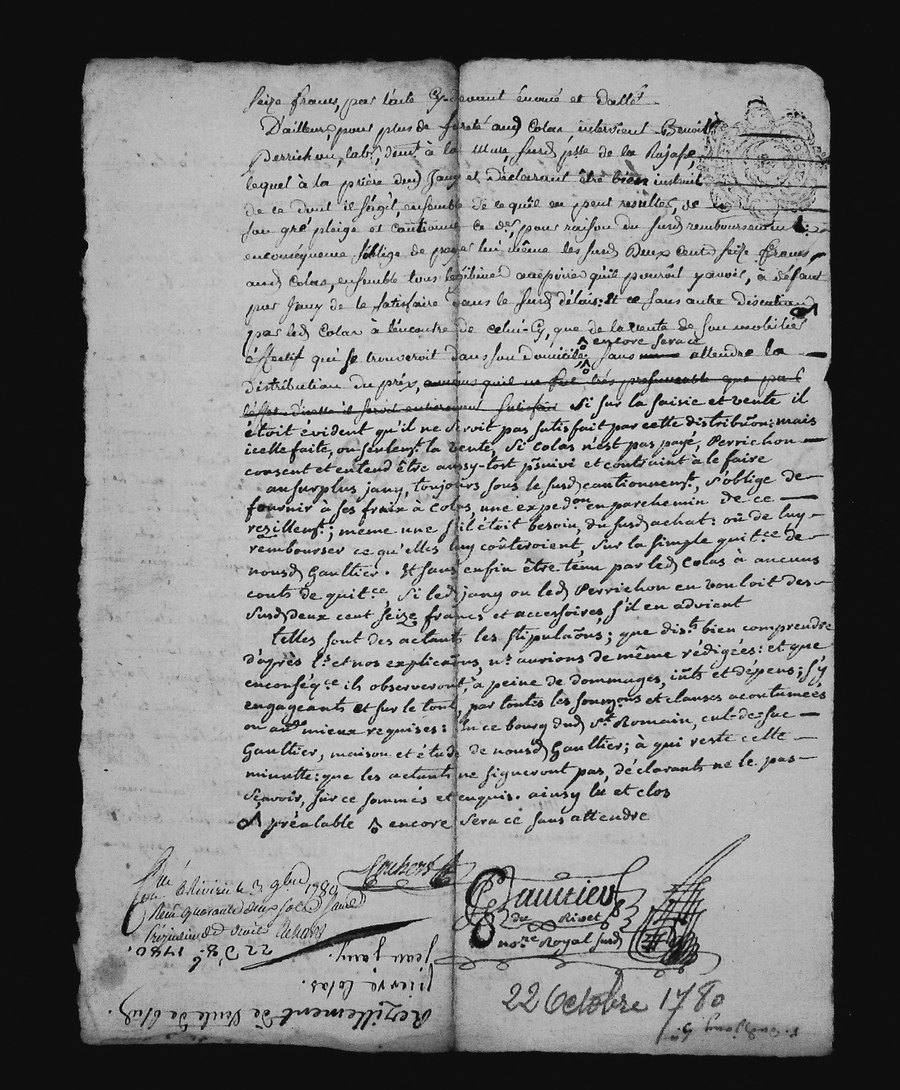 seize francs, par l'acte cy-devant énoncé et datté
D'ailleur, pour plus de sureté aud Colas, intervient Benoit
Perrichon, lab.r, demt à la Mure, susd psse de la Rajasse,
lequel à la prière dud Jany et déclarant être bien instruit
de ce dont il s'agit, ensemble de ce qu'il en peut resulter, de
son gré pleige et cautionne ce der, pour raison du susd remboursement
enconséquence s'oblige de payer lui même les susd deux cent seize francs
aud Colas, ensemble tous légitimes accessoires qu'il pouroit y avoir, à défaut
par Jany de le satisfaire dans le susd délais: Et ce sans autre discution
par led Colas a l'encontre de celui-cy, que de la vente de son mobilier
effectif qui se trouveroit dans son domicile, sans attendre la
encore sera ce
distribution du prix,
Si sur la saisie et vente il
étoit évident qu'il ne seroit pas satisfait par cette distribuõn: mais
icelle faite, ou seulemt. la vente, si Colas n'est pas payé, Perrichon
consent et entend être aussy-tôst pšuivi et contraint à le faire
au surplus jany, toujours sous le susd cautionnemt, s'oblige de
fournir à ses fraix à Colas, une expedon en parchemin de ce
rezillemt.; même une s'il étoit besoin, du susd achat: où de luy
rembourser ce qu'elles luy coûteroient, sur la simple quit.ce de
nousd Gaultier. Et sans enfin être tenu par led Colas à aucuns
couts de quit.ce si led jany ou led Perrichon en vouloit des
susd deux cent seize francs et accessoires, s'il en advient
telles sont des actants les stipulaõns; que dis.t bien comprendre
d'après l.e et nos explicaõns, n.s aurions de même rédigées: et que
enconséq.ce ils observeront, à peine de dommages, intts et dépens; s'y
engageants et sur le tout, par toutes les soumons et clauses acoutumées
ou aud mieux requises: En ce bourg dud St. Romain, cul-de-sac
Gaultier, maison et étude de nousd Gaultier; à qui reste cette
minutte: que les actants ne signeront pas, déclarants ne le pas
sçavoir, sur ce sommés et enquis. ainsy lu et clos
préalable encore sera ce sans attendre
Gaultier
du Rivet
no.re Royal susd
à Rivirie le 3. 9bre 1780
Reçu quarante deux sols
22 8.bre 1780.
jean jany.
pierre Colas.
Rezillement de Vente de
22 Octobre 1780